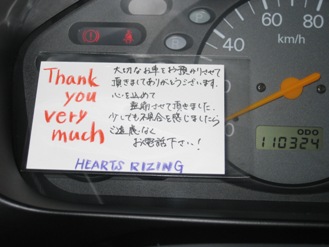 Thank
you
very
much
大切なお車をお預かりさせて
頂きましてありがとうございます.
心を込めて
整備させて頂きました.
少しでも不具合を感じましたら
ご遠慮なく
お電話下さい!
HEARTS RIZING
40
80
km/h
110324